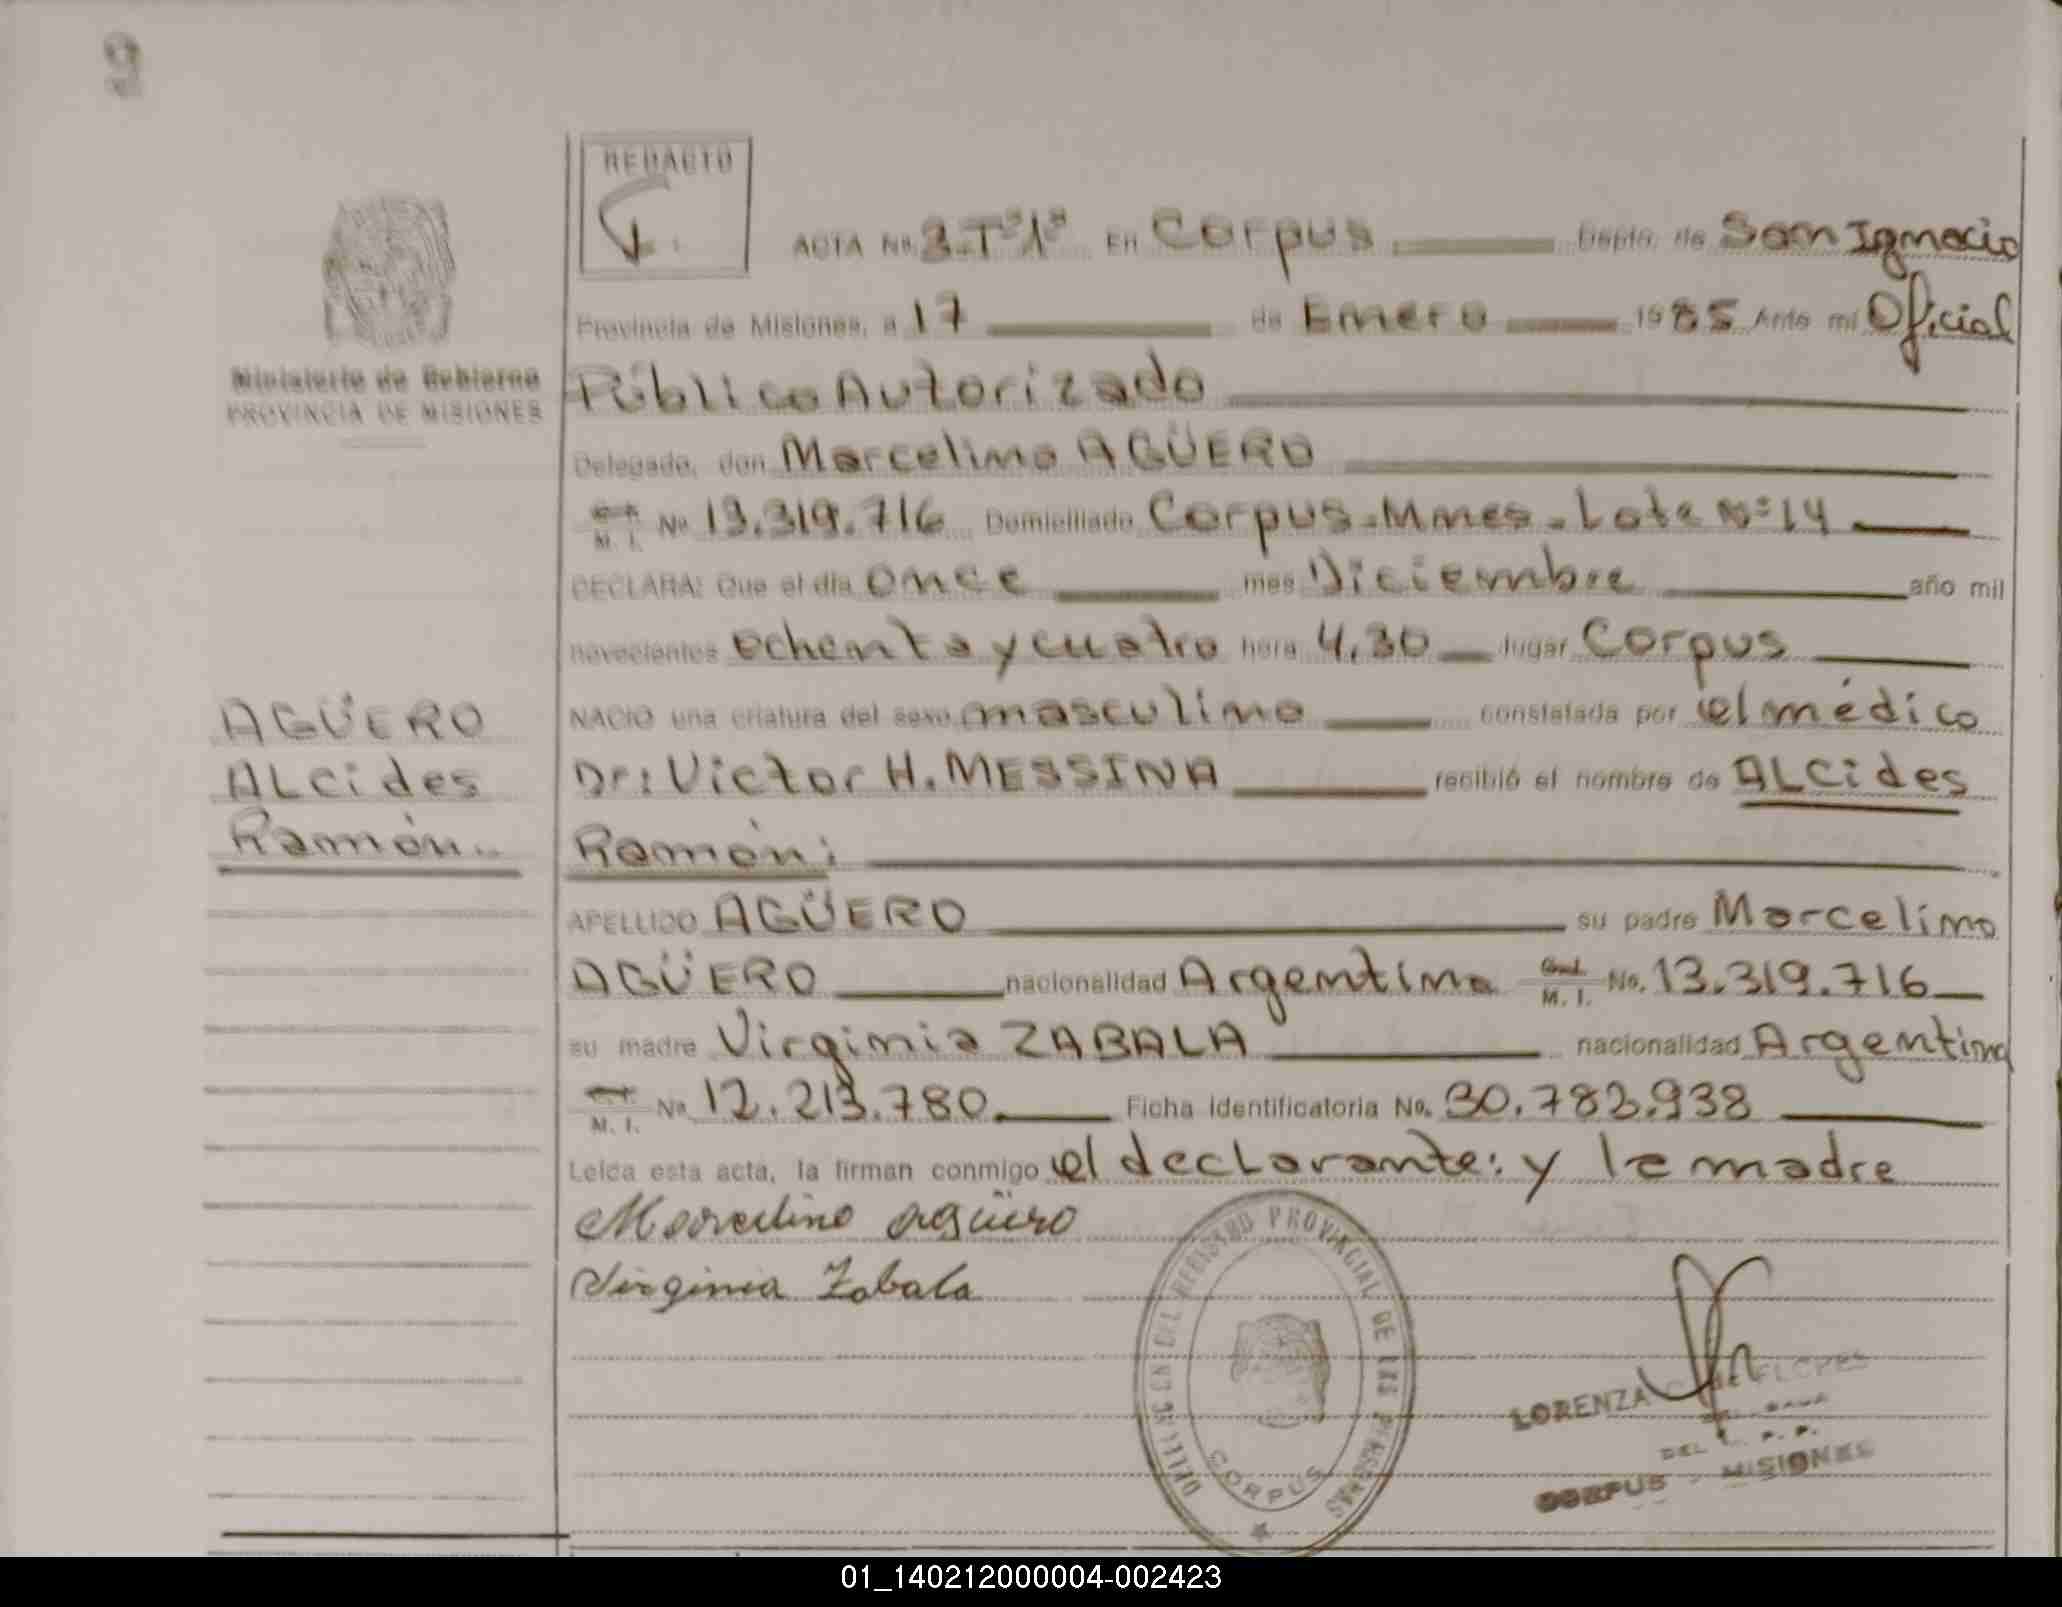 9
REDACTO
ACTA No. 3-Tº1º EN Corpus Depto. de San Ignacio
Provincia de Misiones, a 17 de Enero 1985 Ante mí Oficial
Ministerio de Gobierno
PROVINCIA DE MISIONES
Público Autorizado
Delegado, don Marcelino AGÜERO
M. I. No 13.319.716 Domiciliado Corpus-Mnes-Lote Nº 14
DECLARA: Que el día once mes Diciembre año mil
novecientos ochenta y cuatro hora 4,30 lugar Corpus
NACIO una criatura del sexo masculino constatada por el médico
Dr: Victor H. MESSINA recibió el nombre de ALCides
Ramón:
AGÜERO
ALCides
Ramón..
APELLIDO AGÜERO su padre Marcelino
AGÜERO nacionalidad Argentina M. I. No. 13.319.716
su madre Virginia ZABALA nacionalidad Argentina
M. I. No 12.213.780. Ficha Identificatoria No. 30.783.938
Leída esta acta, la firman conmigo el declarante: y la madre
Marcelino agüero
Virginia Zabala
DEL REGISTRO PROVINCIAL DE LAS PERSONAS
CORPUS
LORENZA DE FLORES
DEL R. P. P.
CORPUS - MISIONES
01_140212000004-002423